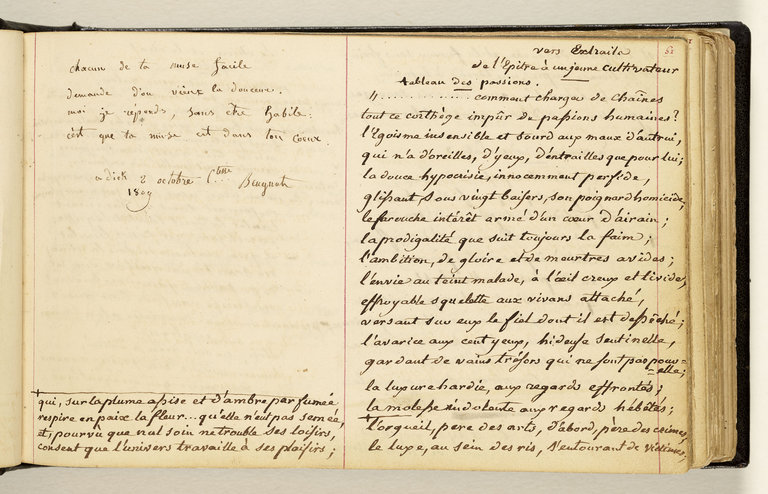 chacun de ta muse facile
demande d'ou vient la douceur.
moi je réponds, sans être habile.
c'est que ta muse est dans ton coeur.
a dick 2 octobre C.tesse Beugnot
1809
qui, sur la plume assise et d'ambre parfumée
respire en paix la fleur... qu'elle n'eut pas semée,
et, pourvû que nul soin ne trouble ses loisirs,
consent que l'univers travaille à ses plaisirs;
vers Extraits
de l'Epitre à un jeune cultivateur
tableau des passions.
.............. comment charge de chaînes
tout ce corthège impûr de passions humaines?
l'Egoisme insensible et sourd aux maux d'autrui,
qui n'a d'oreilles, d'yeux, d'entrailles que pour lui;
la douce hypocrisie, innocemment perfide,
glissant sous vingt baisers, son poignard homicide,
le farouche intérêt armé d'un cœur d'airain;
la prodigalité que suit toujours la faim;
l'ambition, de gloire et de meurtres avides;
l'envie au teint malade, à l'œil creux et livide,
effroyable squelette aux vivans attaché,
versant sur eux le fiel dont il est desséché;
l'avarice aux cent yeux, hideuse sentinelle,
gardant de vains trésors qui ne sont pas pour=
=elle;
la luxure hardie, aux regards effrontés;
la molesse indolente aux regards hébétés;
l'orgueil, père des arts, d'abord, père des crimes,
le luxe, au sein des ris, s'entourant de victimes,